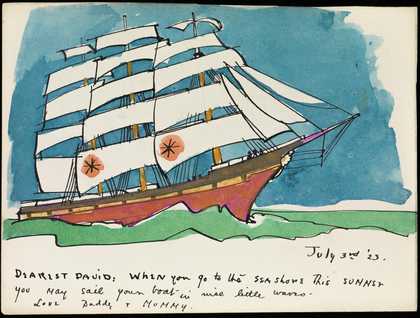 July 3rd '23.
DEAREST DAVID: WHEN you go to the SEA shore THIS SUMMER
you may sail your boat in nice little waves.
Love Daddy + MOMMY.